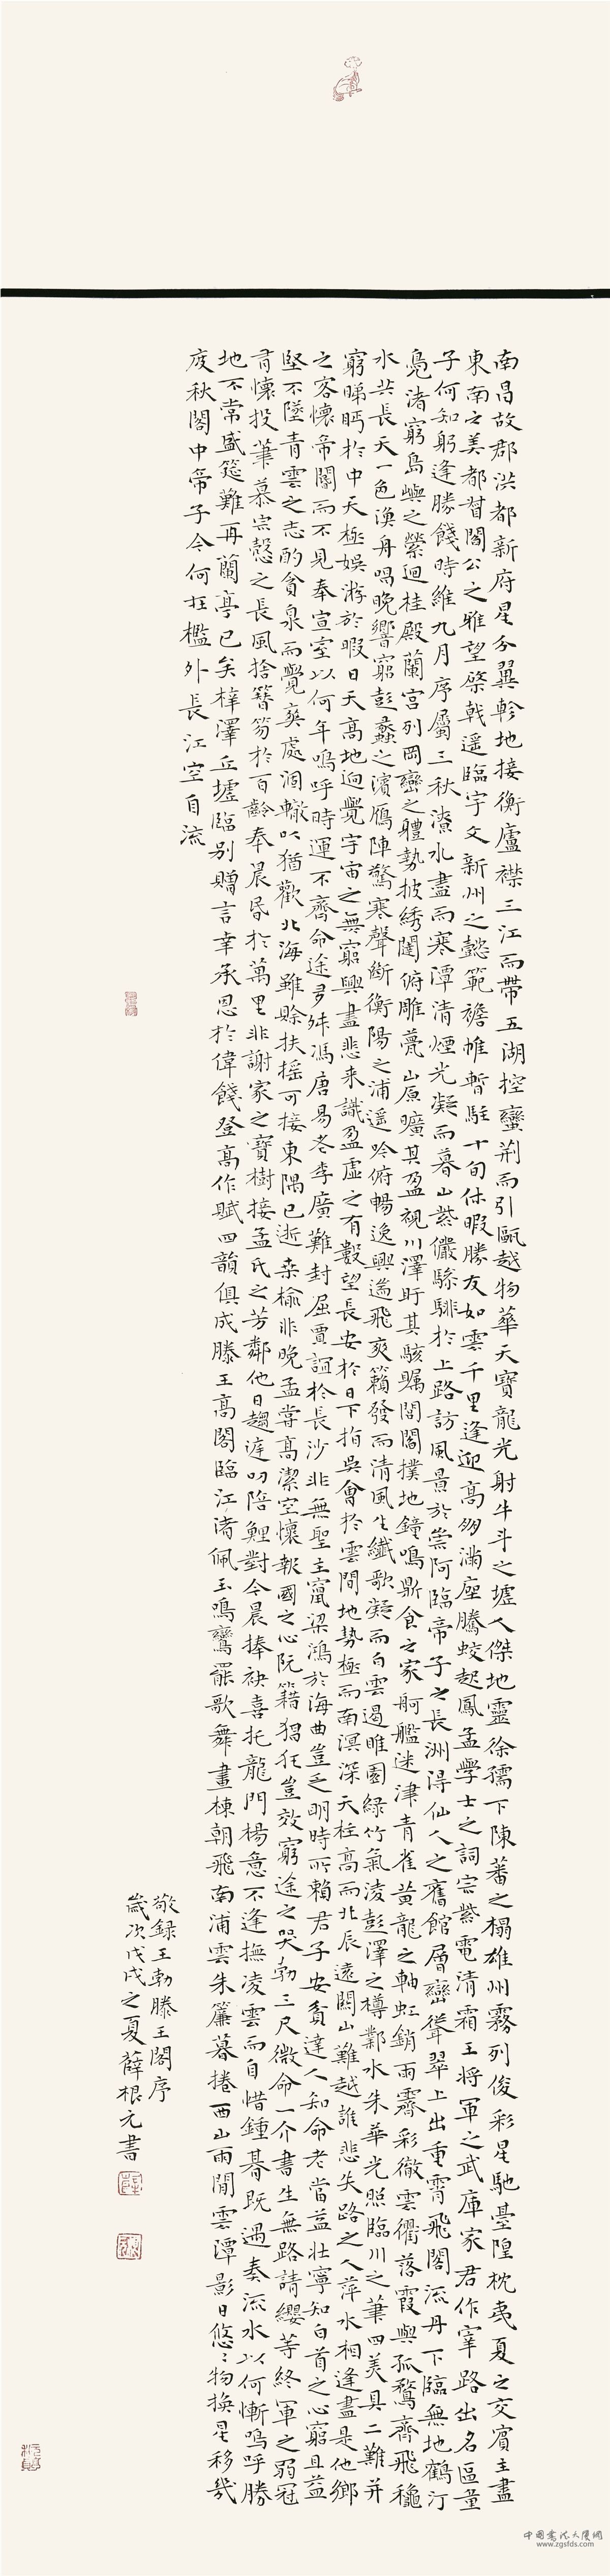 南昌故郡洪都新府星分翼軫地接衡廬襟三江而帶五湖控蠻荊而引甌越物華天寶龍光射牛斗之墟人傑地靈徐孺下陳蕃之榻雄州霧列俊彩星馳臺隍枕夷夏之交賓主盡
東南之美都督閻公之雅望棨戟遥臨宇文新州之懿範襜帷暫駐十旬休暇勝友如雲千里逢迎高朋滿座騰蛟起鳳孟學士之詞宗紫電清霜王將軍之武庫家君作宰路出名區童
子何知躬逢勝餞時維九月序屬三秋潦水盡而寒潭清煙光凝而暮山紫儼驂騑於上路訪風景於崇阿臨帝子之長洲得仙人之舊館層巒聳翠上出重霄飛閣流丹下臨無地鶴汀
鳧渚窮島嶼之縈迴桂殿蘭宮列岡巒之體勢披綉闥俯雕甍山原曠其盈視川澤盱其駭矚閭閻撲地鐘鳴鼎食之家舸艦迷津青雀黄龍之軸虹銷雨霽彩徹雲衢落霞與孤鶩齊飛穐
水共長天一色漁舟唱晚響窮彭蠡之濱雁陣驚寒聲斷衡陽之浦遥吟俯暢逸興遄飛爽籟發而清風生纖歌凝而白雲遏睢園緑竹氣凌彭澤之樽鄴水朱華光照臨川之筆四美具二難并
窮睇眄於中天極娛游於暇日天高地迥覺宇宙之無窮興盡悲来識盈虛之有數望長安於日下指吳會於雲間地勢極而南溟深天柱高而北辰遠關山難越誰悲失路之人萍水相逢盡是他鄉
之客懷帝閽而不見奉宣室以何年嗚呼時運不齊命途多舛馮唐易老李廣難封屈賈誼於長沙非無聖主竄梁鴻於海曲豈乏明時所賴君子安貧達人知命老當益壯寧知白首之心窮且益
堅不墜青雲之志酌貪泉而覺爽處涸轍以猶歡北海雖賒扶摇可接東隅已逝桑榆非晚孟嘗高潔空懷報國之心阮籍猖狂豈效窮途之哭勃三尺微命一介書生無路請纓等終軍之弱冠
有懷投筆慕宗愨之長風捨簪笏於百齡奉晨昏於萬里非謝家之寶樹接孟氏之芳鄰他日趨庭叨陪鯉對今晨捧袂喜托龍門楊意不逢撫凌雲而自惜鍾期既遇奏流水以何慚嗚呼勝
地不常盛筵難再蘭亭已矣梓澤丘墟臨别贈言幸承恩於偉餞登高作賦四韻俱成滕王高閣臨江渚佩玉鳴鸞罷歌舞畫棟朝飛南浦雲朱簾暮捲西山雨閒雲潭影日悠〻物換星移幾
度秋閣中帝子今何在檻外長江空自流
敬録王勃滕王閣序
歲次戊戌之夏薛根元書
中国書法大厦網
www.zgsfds.com